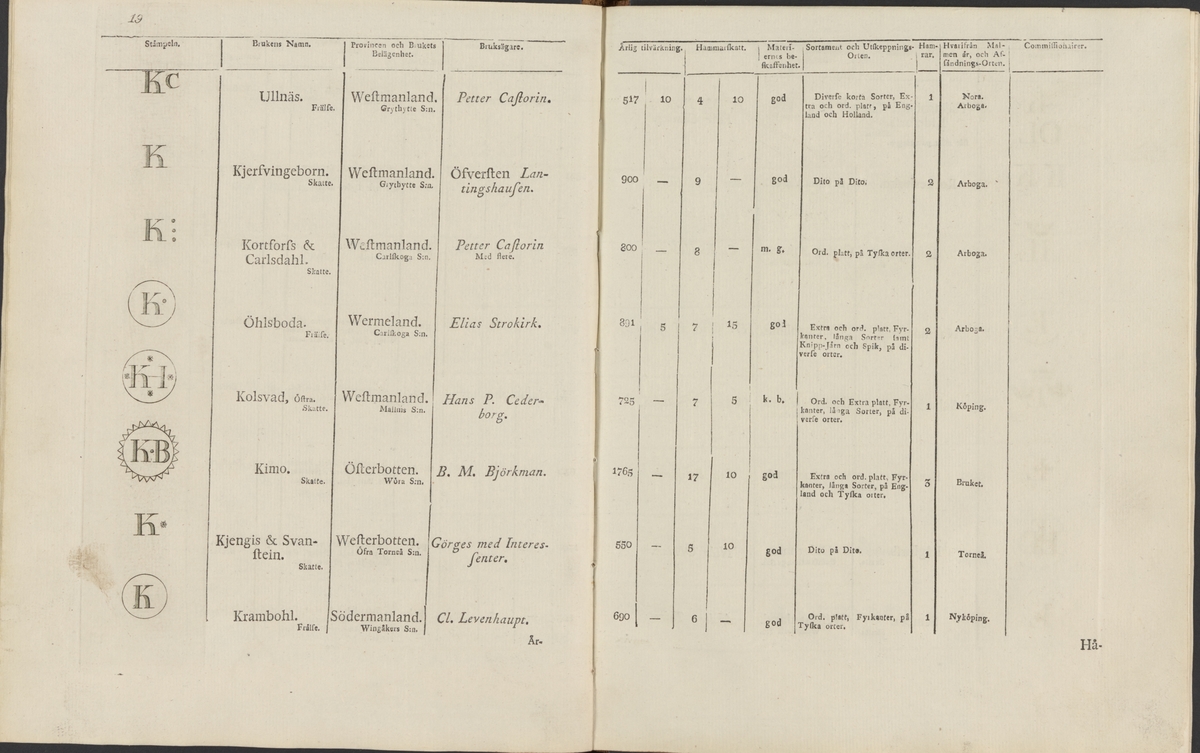 19
Stämpeln. Brukens Namn. Provincen och Brukets Belägenhet. Bruksägare.
Kc Ullnäs. Weſtmanland. Petter Caſtorin.
Frälſe. Grythytte S:n.
K Kjerſvingeborn. Weſtmanland. Öfverſten Lan-
Skatte. Grythytte S:n. tingshauſen.
K: Kortforſs & Weſtmanland. Petter Caſtorin
Carlsdahl. Carlſkoga S:n. Med flere.
Skatte.
K Öhlsboda. Wermeland. Elias Strokirk.
Frälſe. Carlſkoga S:n.
KH Kolsvad, Öſtra. Weſtmanland. Hans P. Ceder-
Skatte. Malims S:n. borg.
K·B Kimo. Öſterbotten. B. M. Björkman.
Skatte. Wöra S:n.
K* Kjengis & Svan- Weſterbotten. Görges med Interes-
ſtein. Öfra Torneå S:n. ſenter.
Skatte.
K Krambohl. Södermanland. Cl. Levenhaupt.
Frälſe. Wingåkers S:n.
År-
Årlig tilvärkning. Hammarſkatt. Materiernes beſkaffenhet. Sortsment och Utſkeppnings-Orten. Hamrar. Hvarifrån Malmen är, och Afſändnings-Orten. Commiſſionairer.
517 10 4 10 god Diverſe korta Sorter, Ex- 1 Nora.
tra och ord. platt, på Eng- Arboga.
land och Holland.
900 — 9 — god Dito på Dito. 2 Arboga.
800 — 8 — m. g. Ord. platt, på Tyſka orter. 2 Arboga.
891 5 7 15 god Extra och ord. platt, Fyr- 2 Arboga.
kanter, långa Sorter ſamt
Knipp-Järn och Spik, på di-
verſe orter.
725 — 7 5 k. b. Ord. och Extra platt, Fyr- 1 Köping.
kanter, långa Sorter, på di-
verſe orter.
1765 — 17 10 god Extra och ord. platt, Fyr- 3 Bruket.
kanter, långa Sorter, på Eng-
land och Tyſka orter.
550 — 5 10 god Dito på Dito. 1 Torneå.
690 — 6 — god Ord. platt, Fyrkanter, på 1 Nyköping.
Tyſka orter.
Hå-